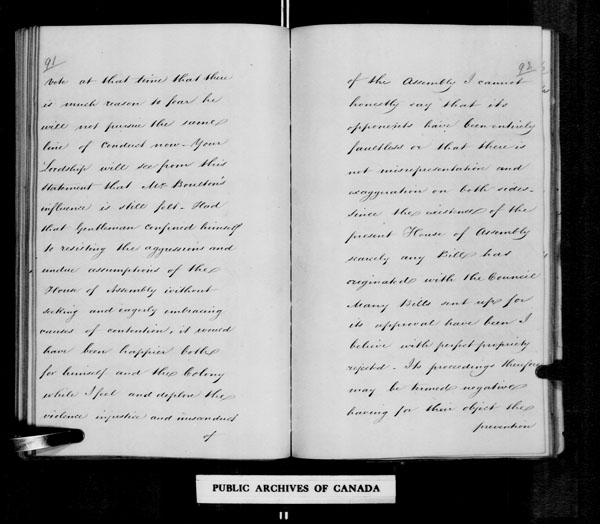 91
vote at that time that there
is much reason to fear he
will not pursue the same
line of conduct now - Your
Lordship will see from this
statement that Mr Boulton's
influence is still felt - Had
that Gentleman confined himself
to resisting the aggressions and
undue assumptions of the
House of Assembly without
seeking and eagerly embracing
causes of contention, it would
have been happier both
for himself and the Colony
while I feel and deplore the
violence injustice and misconduct
of
92
of the Assembly I cannot
honestly say that its
opponents have been entirely
faultless or that there is
not misrepresentation and
exaggeration on both sides -
since the existence of the
present House of Assembly
scarcely any Bill has
originated with the Council
Many Bills sent up for
its approval have been I
believe with perfect propriety
rejected - Its proceedings therefore
may be termed negative
having for their object the
prevention
PUBLIC ARCHIVES OF CANADA